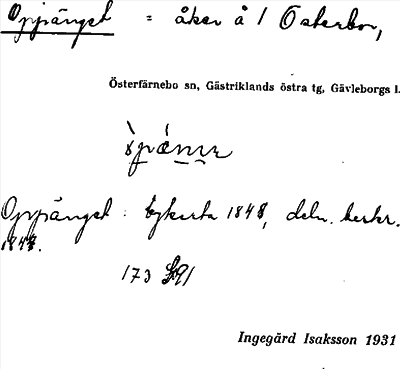 Oppänget = åker å 1 Österbor,
Österfärnebo sn, Gästriklands östra tg, Gävleborgs l.
Oppänget : Egokarta 1848, deln. beskr.
1848.
173
Ingegärd Isaksson 1931